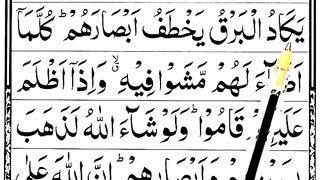 يَكَادُ الْبَرْقُ يَخْطَفُ اَبْصَارَهُمْ ؕ كُلَّمَاۤ
لَهُمْ مَّشَوْا فِيْهِ ۙ وَاِذَاۤ اَظْلَمَ
قَامُوْا ؕ وَلَوْ شَآءَ اللّٰهُ لَذَهَبَ
وَاَبْصَارِهِمْ ؕ اِنَّ اللّٰهَ عَلٰى